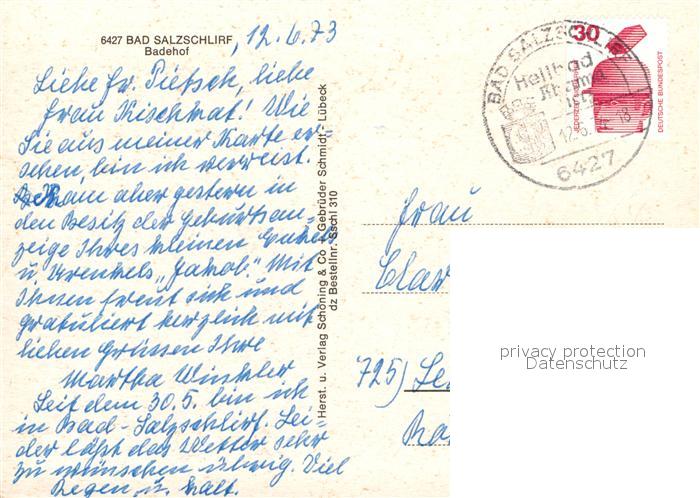 6427 BAD SALZSCHLIRF
Badehof
, 12.6.73
Liebe Fr. Pietsch, liebe
Frau Kischwat! Wie
Sie aus meiner Karte er-
sehen, bin ich verreist.
Bekam aber gestern in
den Besitz der Geburtsan-
zeige Ihres kleinen Enkels
u. Urenkels „Jakob." Mit
Ihnen freut sich und
gratuliert herzlich mit
lieben Grüssen Ihre
Martha Winkler
Seit dem 30.5. bin ich
in Bad-Salzschlirf. Lei-
der läßt das Wetter sehr
zu wünschen übrig. Viel
Regen u. kalt.
Herst. u. Verlag Schöning & Co + Gebrüder Schmidt, Lübeck
dz Bestellnr. Sschl 310
BAD SALZSCHLIRF
Heilbad
6427
30
DEUTSCHE BUNDESPOST
Frau
Clar
725) Le
privacy protection
Datenschutz